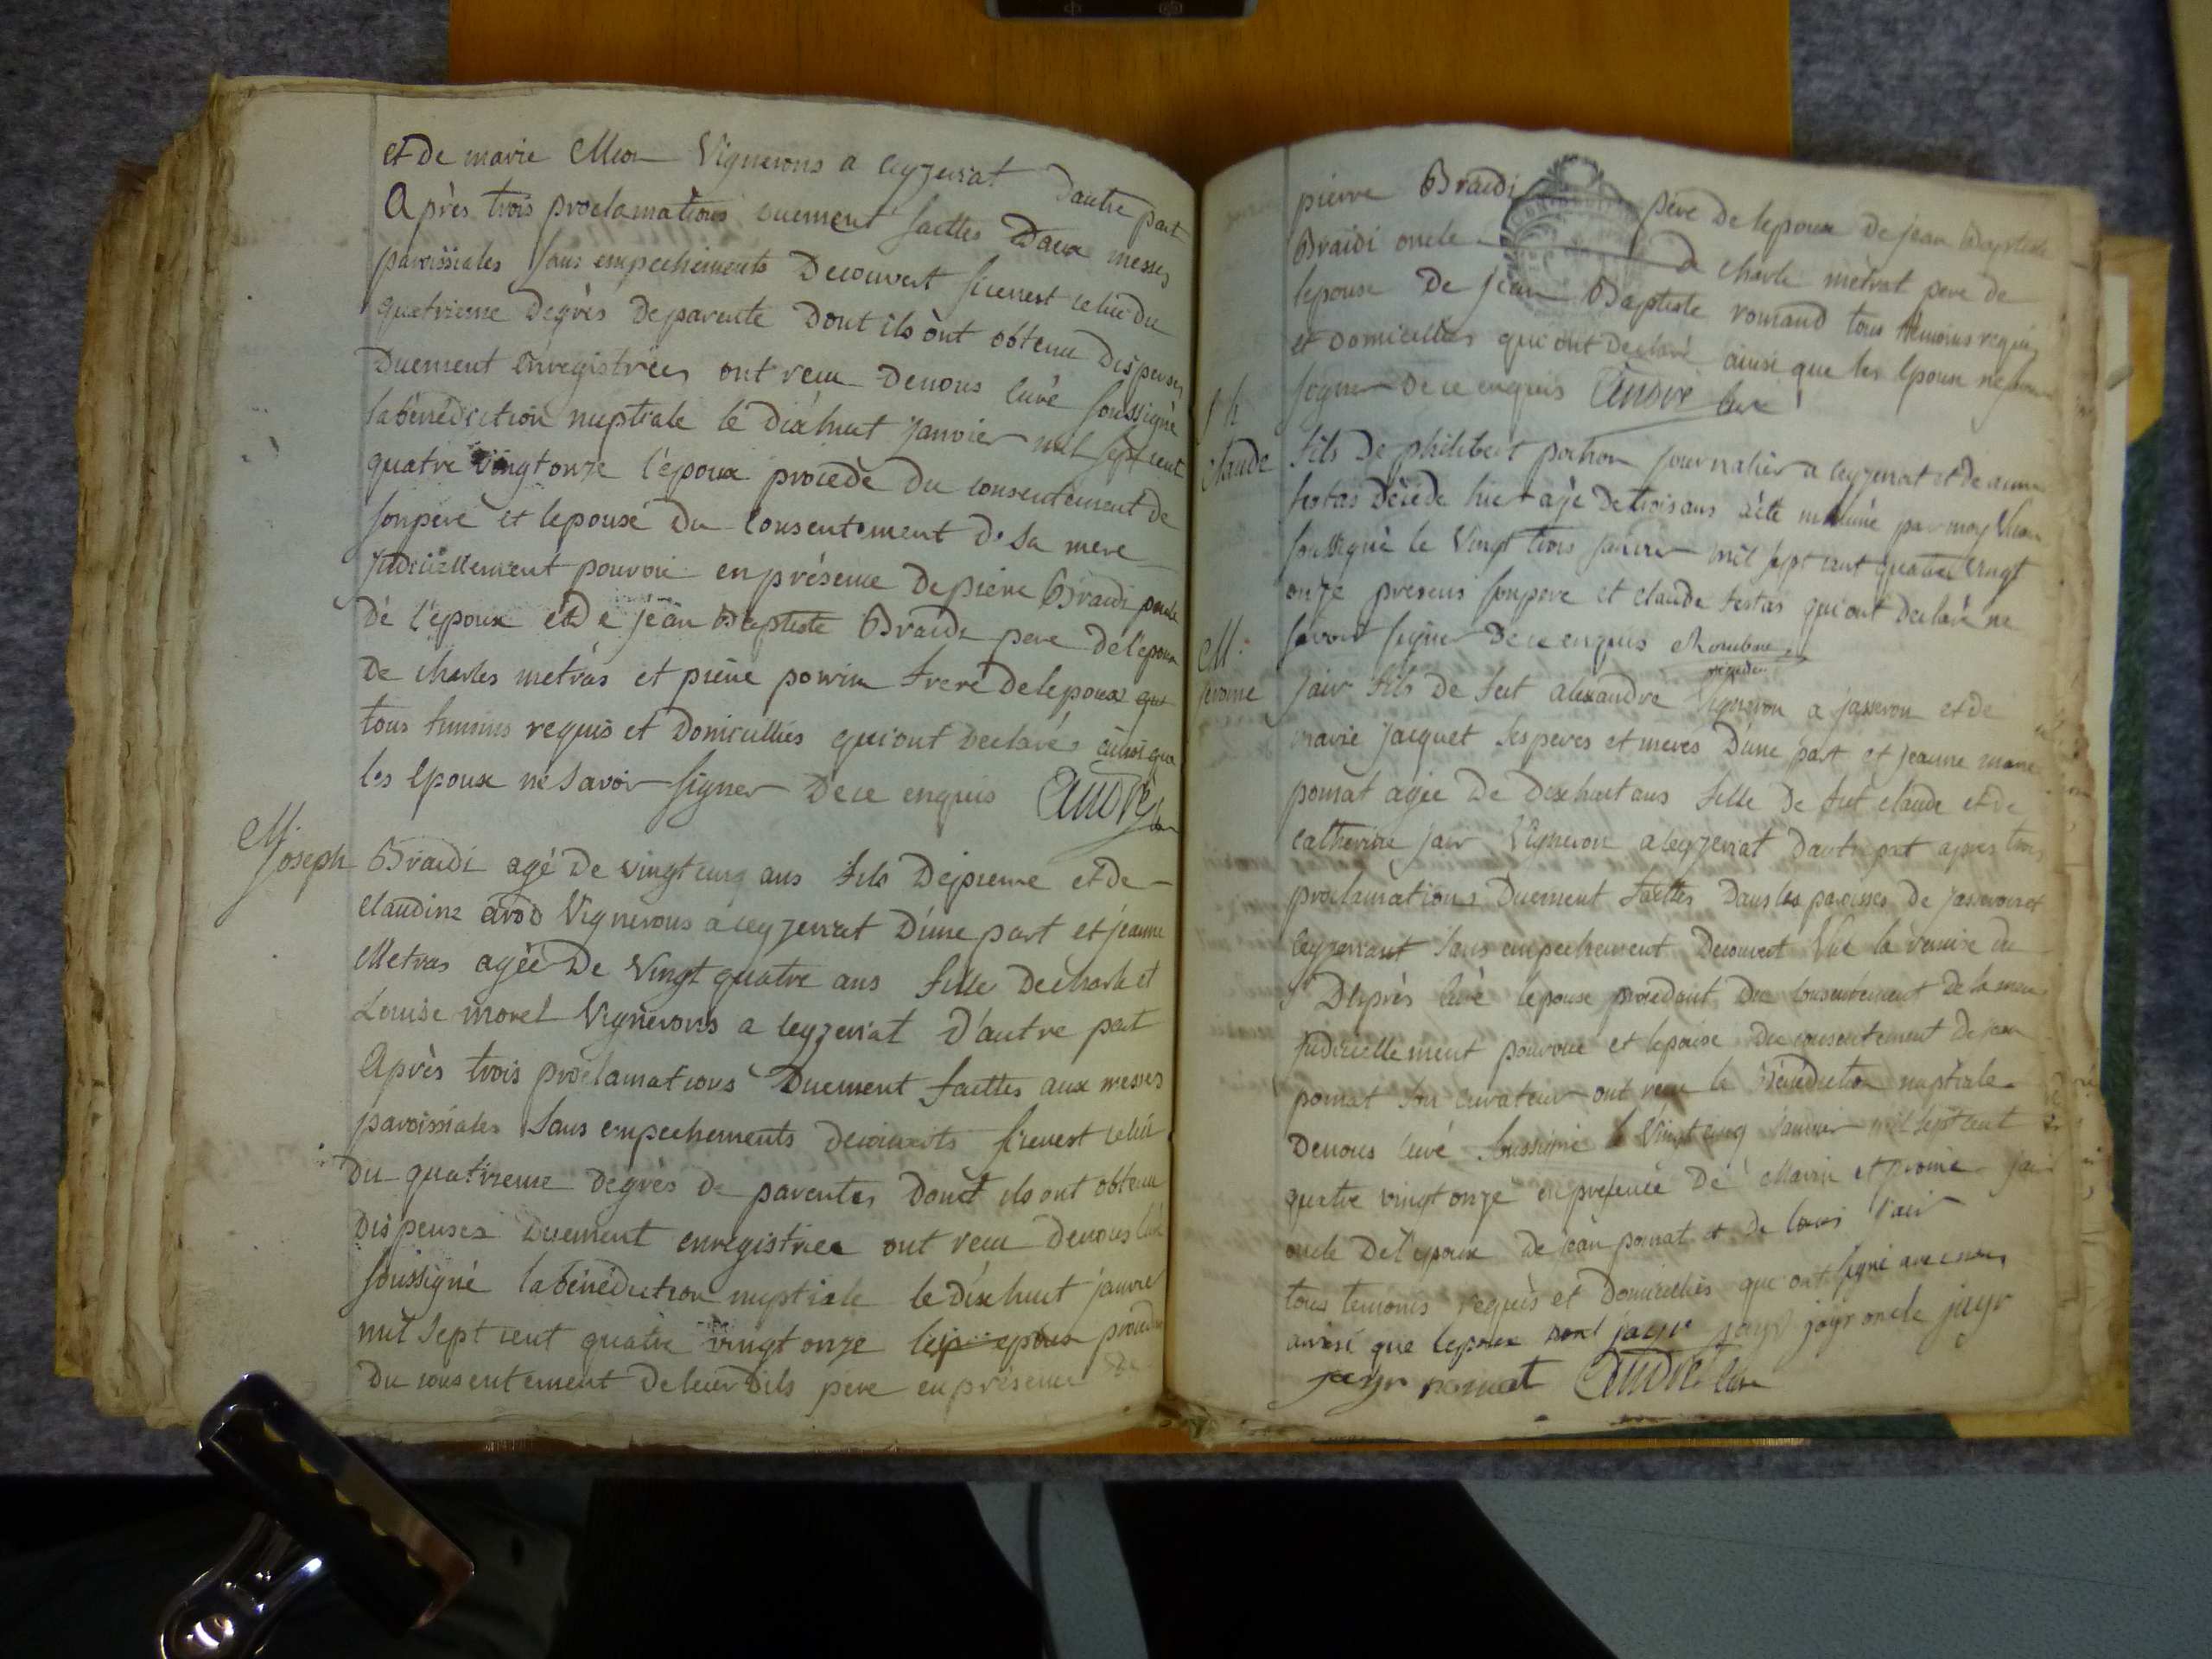 et de marie Mion Vignerons a leyzeriat d'autre part
Après trois proclamations duement faittes Daux messes
paroissiales sans empechements Decouvert sicenest celui du
quatrieme degrès de parenté Dont ils ont obtenu Dispenses
Duement Enregistrées ont recu Denous curé soussigné
la bénédiction nuptiale le dixhuit janvier mil sept cent
quatre vingt onze l'époux procède du consentement de
son pere et lepouse du consentement de sa mere
judiciellement pouvoir en présence de piere Braidi oncle
de l'epoux et de jean Baptiste Braidi pere de l'epoux
de charles metras et piere powin frere de lepouse qui
tous temoins requis et Domicilliés qui ont Declarés ainsi que
les Epoux ne savoir signer De ce enquis André
M.
Joseph Braidi agé de vingt cinq ans fils De pierre et de
claudine arod Vignerons a leyzeriat D'une part et jeanne
Metras agée De vingt quatre ans fille De charle et
Louise morel Vignerons a leyzeriat D'autre part
Après trois proclamations Duement faittes aux messes
paroissiales sans empechements decouverts sicenest celui
du quatrieme degrès de parentés dont ils ont obtenu
Dispenses duement enregistrées ont recu Denous curé
soussigné la bénédiction nuptiale le dixhuit janvier
mil sept cent quatre vingt onze procedant
Du consentement de leur dits pere en présence de
pierre Braidi père De lepoux De jean Baptiste
Braidi oncle charle metrat pere de
lepouse De jean Baptiste romand tous temoins requis
et Domicilliés qui ont Declaré ainsi que les Epoux ne savoir
signer De ce enquis André curé
claude fils De philibert pochon journalier a leyzeriat et de anne
festas Décédé hier agé De trois ans a été inhumé par moy Vicaire
soussigné le Vingt trois janvier mil sept cent quatre vingt
onze presens son pere et claude festas qui ont Declaré ne
savoir signer De ce enquis
M.
jerome jair fils De feut alexandre Vigneron a jasseron et de
marie jacquet ses peres et meres D'une part et jeanne marie
pomat agée De Dixhuit ans fille De feut claude et de
catherine jair Vigneron a leyzeriat D'autre part apres trois
proclamations Duement faittes Dans les paroisses De jasseron et
leyzeriant sans empechement Decouvert Vue la remise du
Dit curé lepoux procedant du consentement de la mere
judiciellement pourvue et lepouse Du consentement de jean
pomat son curateur ont recu la Bénédiction nuptiale
Denous curé soussigné le Vingt cinq janvier mil sept cent
quatre vingt onze en presence De Marin et jair
oncle De l'epoux de jean pomat et de louis jair
tous temoins requis et Domicilliés qui ont signé avec nous
ainsi que lepoux jayr jayr jayr oncle jayr
jayr pomat André curé